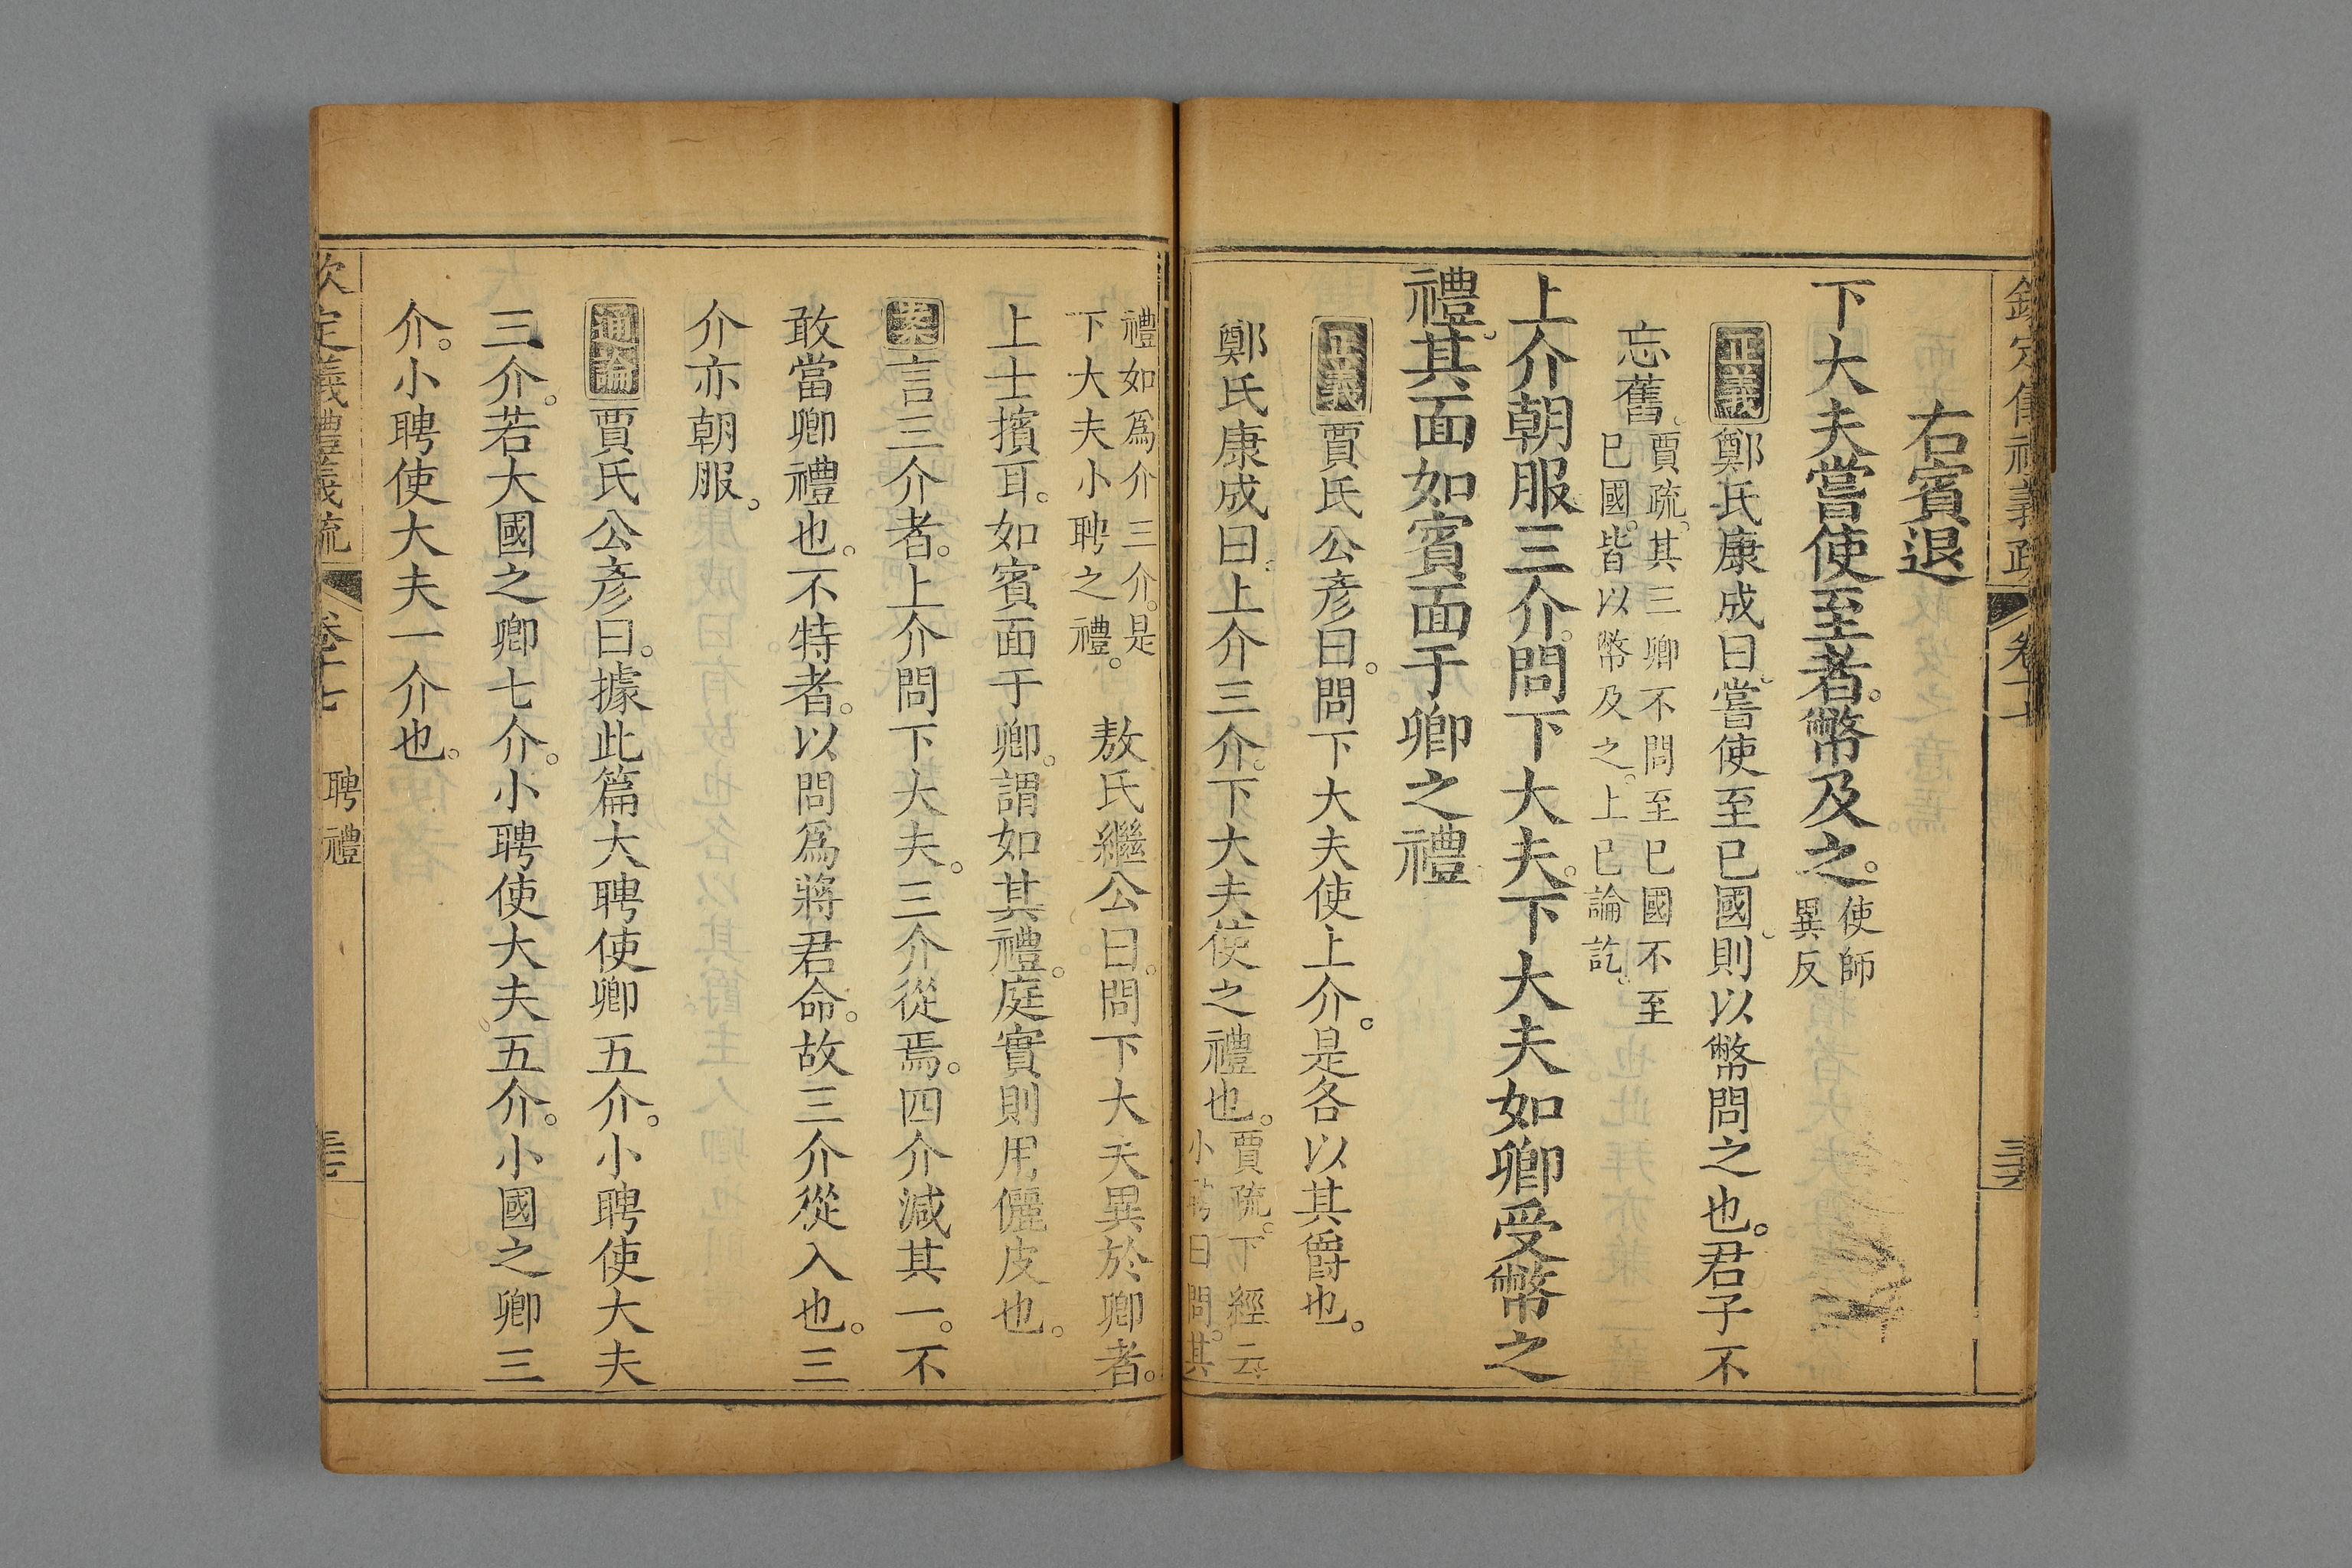 欽定儀禮義疏 卷十七 三六
右賓退
下大夫嘗使至者。幣及之。使師異反
正義鄭氏康成曰。嘗使至已國。則以幣問之也。君子不
忘舊。賈疏。其三卿不問至已國不至已國。皆以幣及之。上已論訖。
上介朝服。三介。問下大夫。下大夫如卿受幣之
禮。其面如賓面于卿之禮
正義賈氏公彦曰。問下大夫使上介。是各以其爵也。
鄭氏康成曰。上介三介。下大夫使之禮也。賈疏。下經云小聘曰問。其
禮如爲介三介。是下大夫小聘之禮。 敖氏繼公曰。問下大夫異於卿者。
上士擯耳。如賓面于卿。謂如其禮。庭實則用儷皮也。
案言三介者。上介問下大夫。三介從焉。四介減其一。不
敢當卿禮也。不特者。以問爲將君命。故三介從入也。三
介亦朝服。
通論賈氏公彦曰。據此篇大聘使卿五介。小聘使大夫
三介。若大國之卿七介。小聘使大夫五介。小國之卿三
介。小聘使大夫一介也。
欽定義禮義疏 卷十七 聘禮 三七